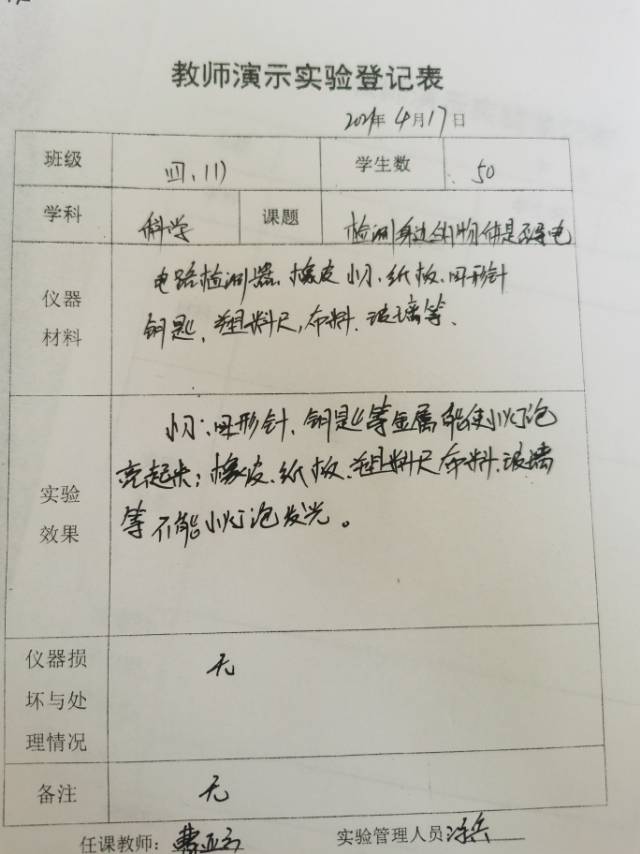 教师演示实验登记表
2021年4月17日
班级 四.(1) 学生数 50
学科 科学 课题 检测身边的物体是否导电
仪器材料 电路检测器、橡皮、小刀、纸板、回形针
钥匙、塑料尺、布料、玻璃等、
实验效果 小刀、回形针、钥匙等金属能使小灯泡
亮起来；橡皮、纸板、塑料尺、布料、玻璃
等不能小灯泡发光。
仪器损坏与处理情况 无
备注 无
任课教师： 实验管理人员